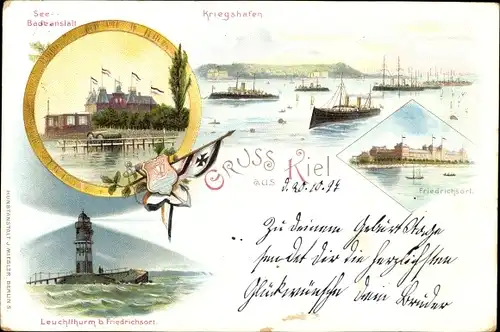 See-
Badeanstalt
Kriegshafen
GRUSS
aus Kiel
d. 20.10.97
Friedrichsort.
Zu Deinem Geburtstage
sendet Dir die herzlichsten
Glückwünsche Dein Bruder
Leuchtthurm b. Friedrichsort.
KUNSTANSTALT J. MIESLER, BERLIN S.